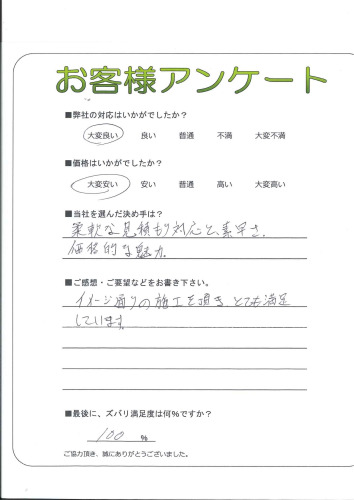 お客様アンケート
■弊社の対応はいかがでしたか?
大変良い 良い 普通 不満 大変不満
■価格はいかがでしたか?
大変安い 安い 普通 高い 大変高い
■当社を選んだ決め手は?
柔軟な見積もり対応と、素早さ、
価格的な魅力。
■ご感想・ご要望などをお書き下さい。
イメージ通りの施工を頂き、とても満足
しています。
■最後に、ズバリ満足度は何%ですか?
100 %
ご協力頂き、誠にありがとうございました。